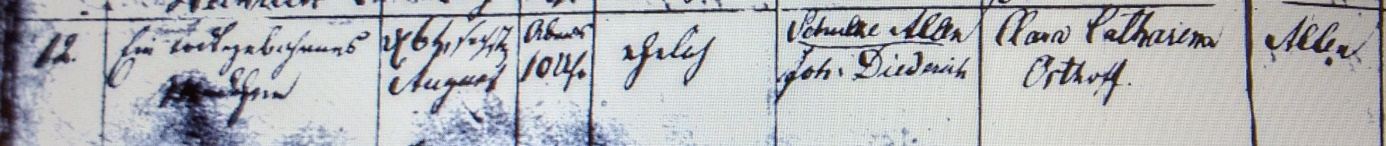 12. Ein todtgebohrnes
Mädchen
26 sechs
August
Abends
10 Uhr
ehelich
Schulze Allen
Joh. Diederich
Clara Catharina
Osthoff.
Allen